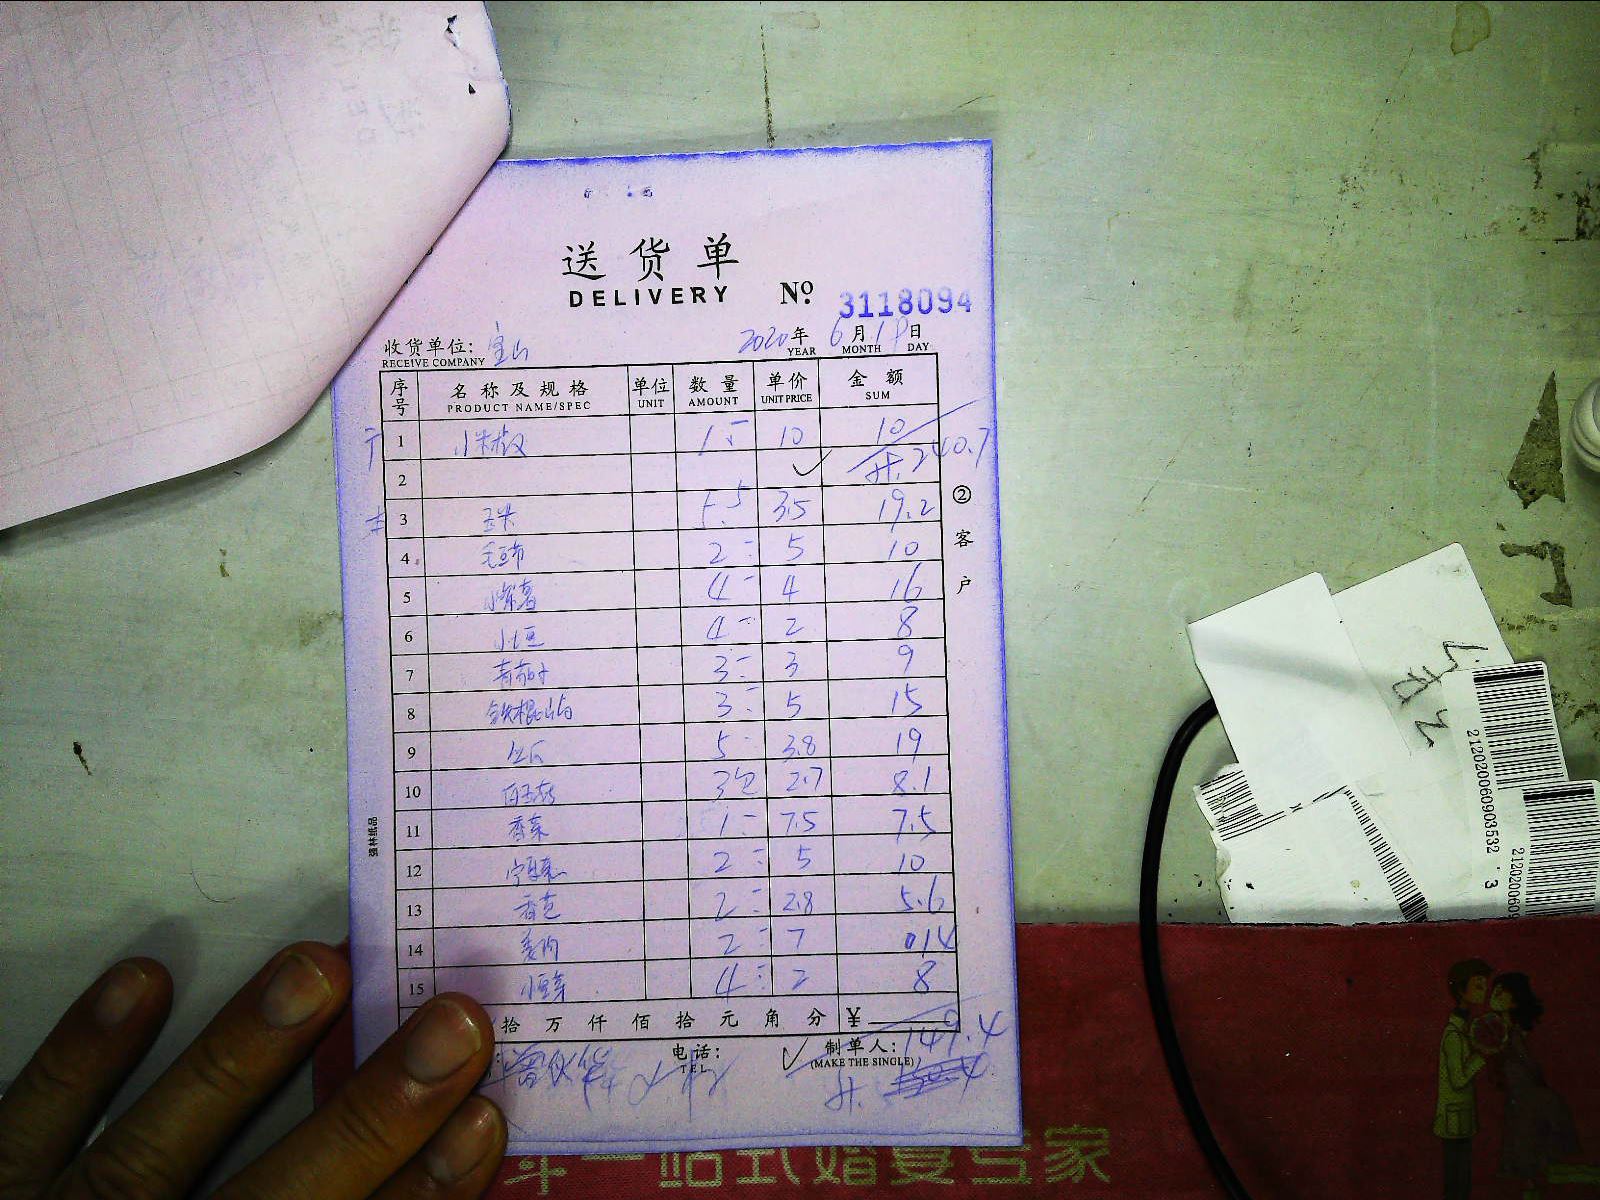 送货单
DELIVERY № 3118094
收货单位: 宝山 2020年 6月 日
RECEIVE COMPANY YEAR MONTH DAY
序号 名称及规格 单位 数量 单价 金额
PRODUCT NAME/SPEC UNIT AMOUNT UNIT PRICE SUM
1 小米椒 1 10 10
2 计.240.7
3 玉米 5.5 3.5 19.2
4 毛豆节 2 5 10
5 小紫薯 4 4 16
6 小土豆 4 2 8
7 青茄子 3 3 9
8 铁棍山药 3 5 15
9 丝瓜 5 3.8 19
10 白玉菇 3包 2.7 8.1
11 香菜 1 7.5 7.5
12 2 5 10
13 香芹 2 2.8 5.6
14 2 7 14
15 小豆芽 4 2 8
拾万仟佰拾元角分 ¥
149.4
电话: 制单人:
TEL (MAKE THE SINGLE)
计.
②客户
强林纸品
2120200609035323
212020060
年一站式婚宴专家